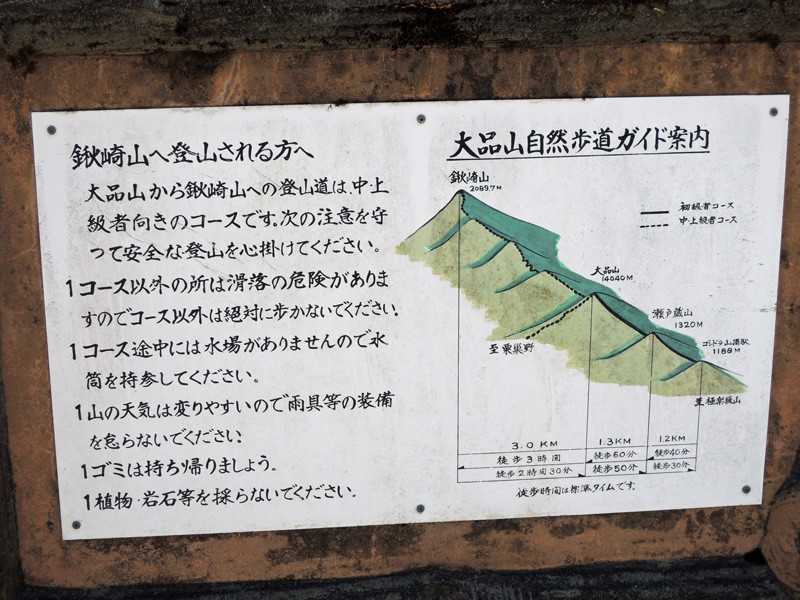 鍬崎山へ登山される方へ
大品山から鍬崎山への登山道は、中上
級者向きのコースです。次の注意を守
って安全な登山を心掛けてください。
1コース以外の所は滑落の危険がありま
すのでコース以外は絶対に歩かないでください。
1コース途中には水場がありませんので水
筒を持参してください。
1山の天気は変りやすいので雨具等の装備
を怠らないでください。
1ゴミは持ち帰りましょう。
1植物・岩石等を採らないでください。
大品山自然歩道ガイド案内
鍬崎山
2089.7M
初級者コース
中上級者コース
大品山
14040M
瀬戸蔵山
1320M
ゴンドラ山頂駅
1188M
至粟巣野
至極楽坂山
3.0KM 1.3KM 1.2KM
徒歩3時間 徒歩60分 徒歩40分
徒歩2時間30分 徒歩50分 徒歩30分
徒歩時間は標準タイムです。